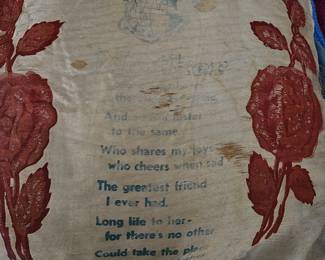 the
And
to the same.
Who shares my joys
who cheers when sad
The greatest friend
I ever had.
Long life to her-
for there's no other
Could take the place